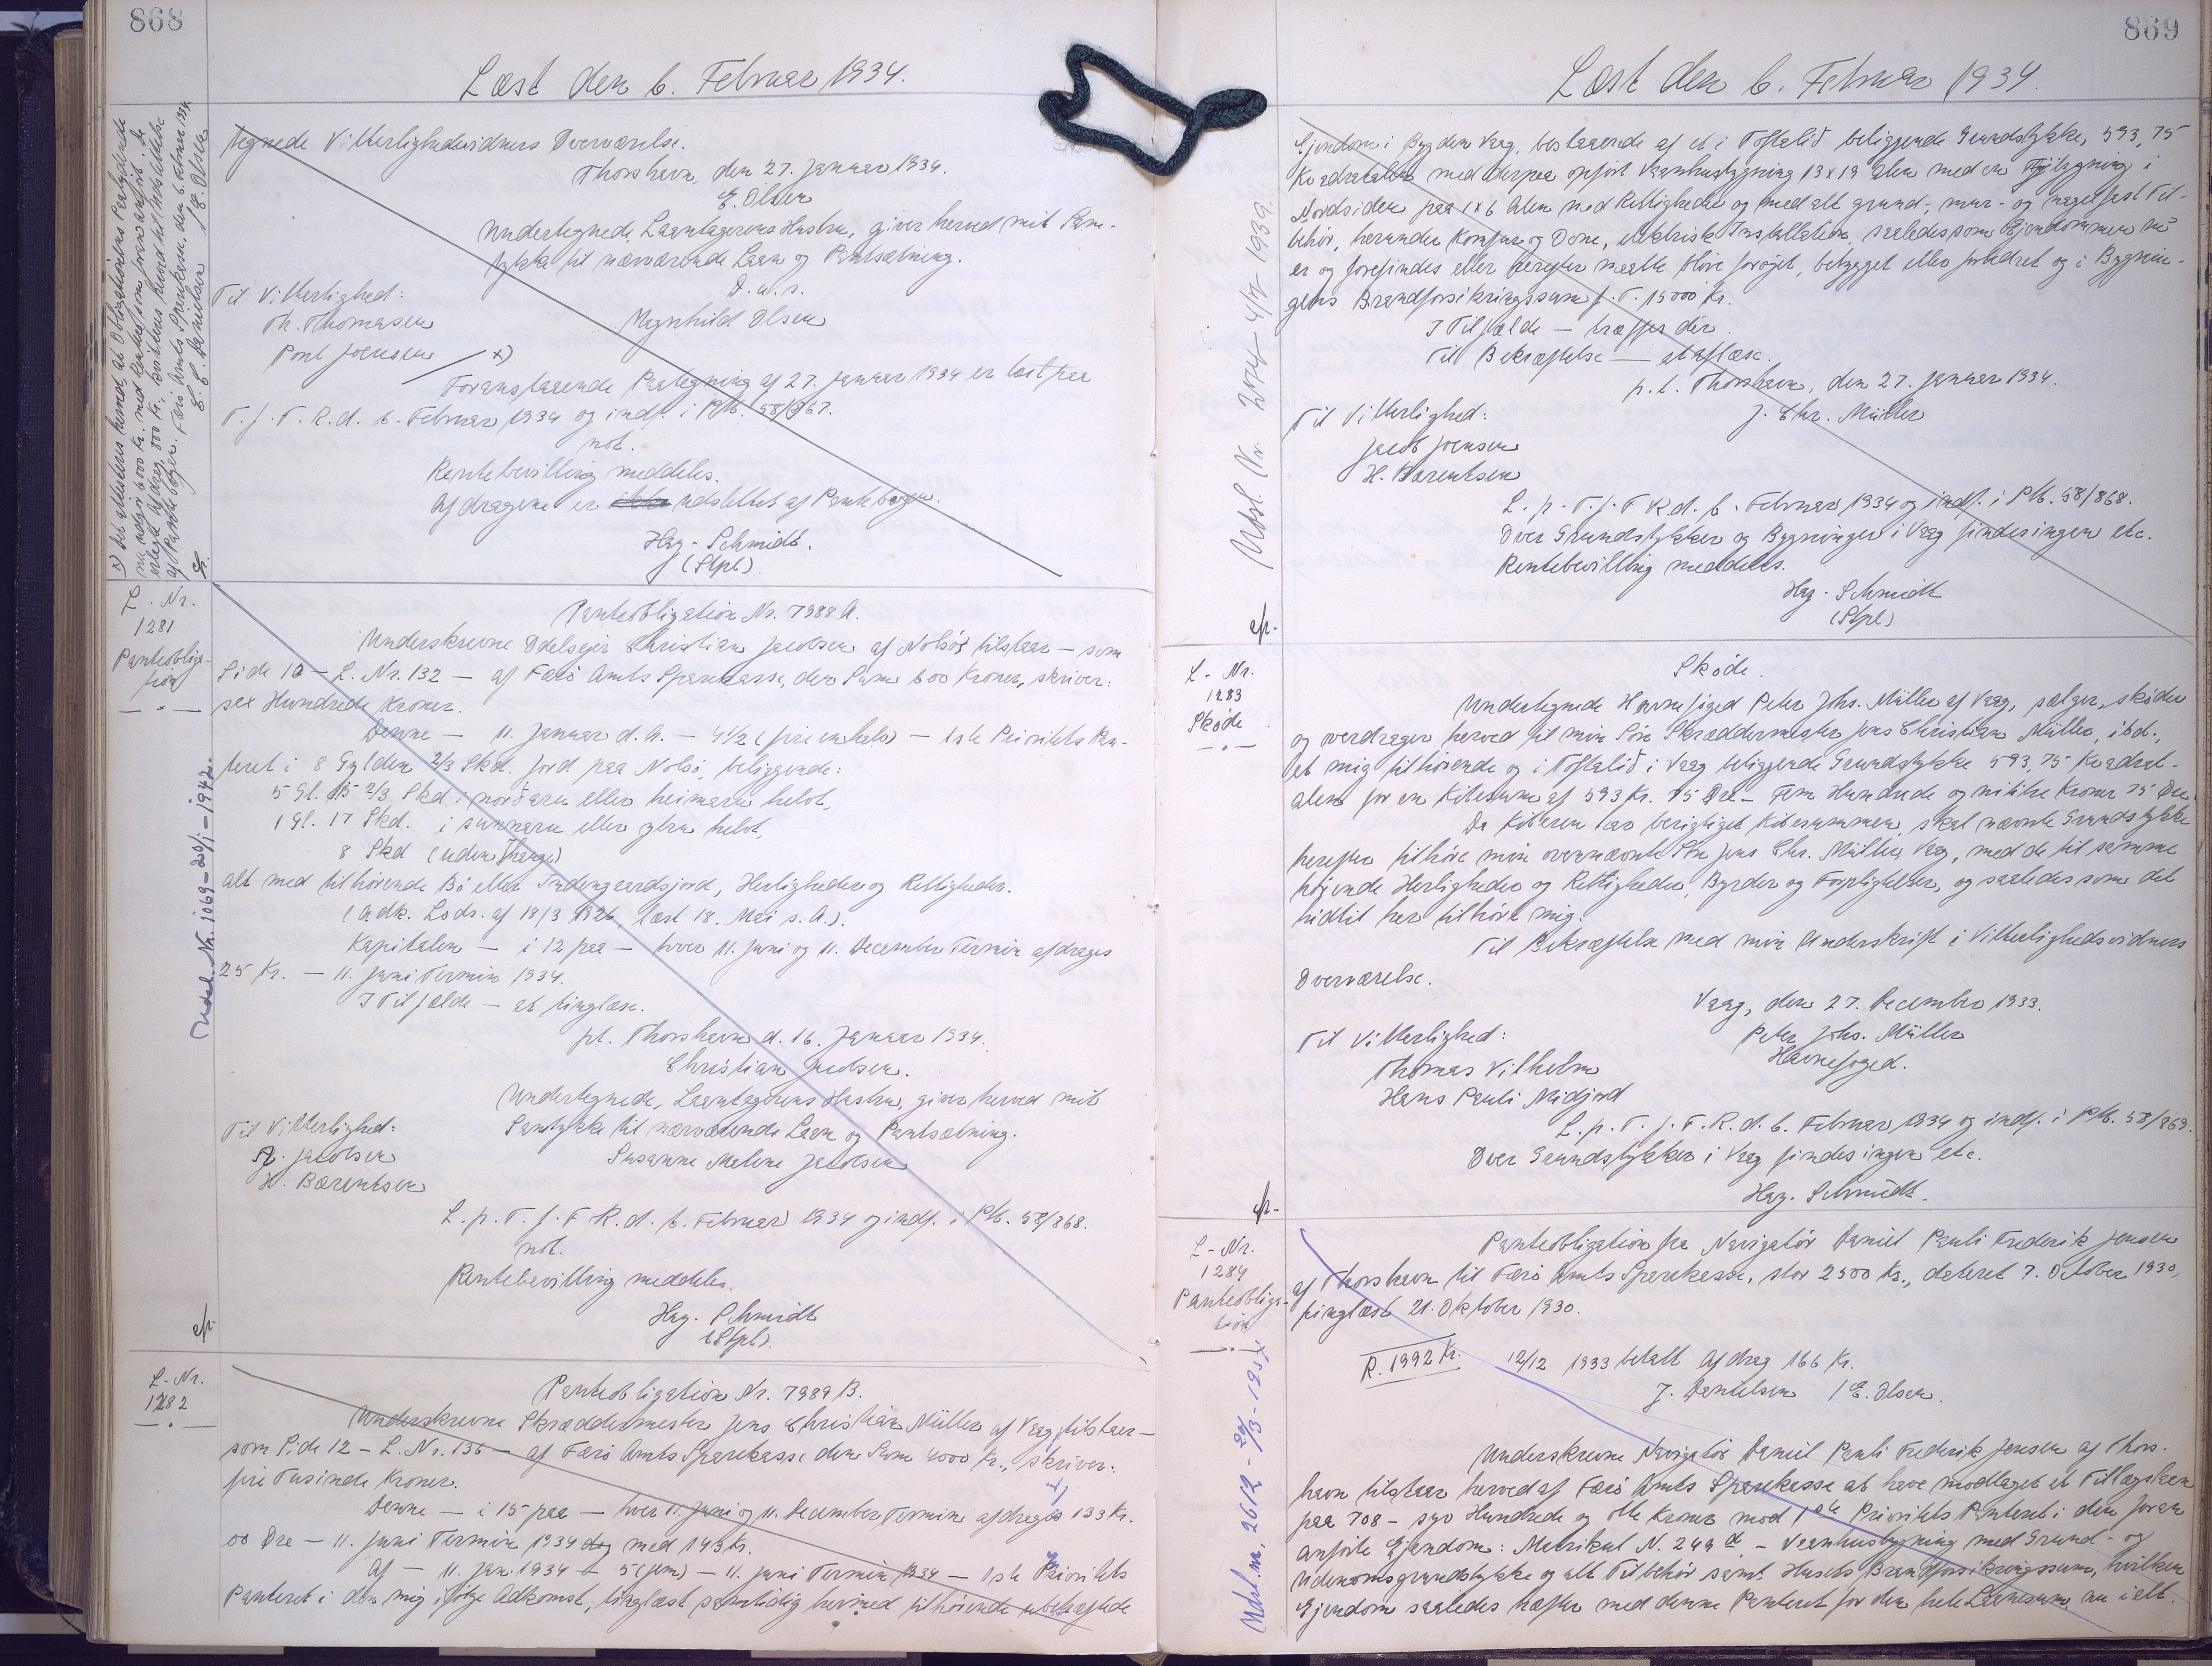 868
Læst den 6. Februar 1934.
tegnede Vitterlighedsvidners Overværelse.
Thorshavn, den 27. Januar 1934.
E. Olsen
Undertegnede, Laantagerens Hustru, giver herved mit Sam-
tykke til nærværende Laan og Pantsætning.
D. u. s.
Til Vitterlighed:
Th. Thomasen
Magnhild Olsen
Poul Joensen
x)
Foranstaaende Paategning af 27. Januar 1934 er læst paa
T. f. F. R. d. 6. Februar 1934 og indf. i PM. 58/867.
not.
Rentebevilling meddeles.
Afdragene er udslettet af Pantebogen.
Hag. Schmidt.
(Stpl).
x) Det attesteres herved at Obligationens Paalydende
nu udgør 6000 Kr. med Renter som foran anført. De
erlagte Afdrag, 800 Kr., kvitteres herved til Udslettelse
af Pantebogen. Færø Amts Sparekasse, den 6. Februar 1934
L. Nr.
1281
Panteobliga-
tion
Panteobligation Nr. 7988 A.
Underskrevne Odelsejer Christian Jacobsen af Nolsø tilstaar — som
Side 12 — L. Nr. 132 — af Færø Amts Sparekasse, den Sum 600 Kroner, skriver:
sex Hundrede Kroner.
Denne — 11. Januar d. A. — 4½ (fire en halv) — 1ste Prioritets Pan-
teret i 8 Gylden 2/3 Skd. Jord paa Nolsø, beliggende:
5 Gl. 15 2/3 Skd i norðaru eller heimaru helvt,
1 Gl. 17 Skd. i sunnaru eller ytru helvt,
8 Skd (uden Hauge)
alt med tilhørende Bø eller Indengaardsjord, Herligheder og Rettigheder.
(Adk. Lods. af 18/3 1926, læst 18. Mai s. A.).
Kapitalen — i 12 paa — hver 11. Juni og 11. December Termin afdrages
25 Kr. — 11. Juni Termin 1934.
I Tilfælde — at tinglæse.
pt. Thorshavn d. 16. Januar 1934.
Christian Jacobsen.
Undertegnede, Laantagerens Hustru, giver herved mit
Samtykke til nærværende Laan og Pantsætning.
Til Vitterlighed:
Susanne Malene Jacobsen
Jacobsen
H. Barentsen
L. p. T. f. F. R. d. 6. Februar 1934 og indf. i PM. 58/868.
not.
Rentebevilling meddeles.
Hag. Schmidt
(Stpl).
Udsl. Nr. 1069 – 20/1 – 1942.
L. Nr.
1282
Panteobligation Nr. 7989 B.
Underskrevne Skræddermester Jens Christian Müller af Vaag tilstaar —
som Side 12 – L. Nr. 136 — af Færø Amts Sparekasse den Sum 4000 Kr., skriver:
fire Tusinde Kroner.
Denne — i 15 paa — hver 11. Juni og 11. December Termin afdrages 133 Kr.
00 Øre — 11. Juni Termin 1934 med 143 Kr.
Af — 11. Jan. 1934 — 5 (fem) — 11. Juni Termin 1934 — 1ste Prioritets
Panteret i den mig ifølge Adkomst, tinglæst samtidig hermed tilhørende ubehæftede
869
Læst den 6. Februar 1934.
Ejendom i Bygden Vaag, bestaaende af et i Toftalið beliggende Grundstykke, 593,75
Kvadratalen med derpaa opført Vaanhusbygning 13x19 Alen med en Tilbygning i
Nordsiden paa 1x6 Alen med Rettigheder og med alt grund-, mur- og nagelfast Til-
behør, herunder Komfur og Ovne, elektrisk Installation, saaledes som Ejendommen nu
er og forefindes eller herefter maatte blive forøget, bebygget eller forbedret og i Bygnin-
gens Brandforsikringssum f. T. 15000 Kr.
I Tilfælde — træffer der.
Til Bekræftelse — at aflæse.
p. t. Thorshavn, den 27. Januar 1934.
Til Vitterlighed:
J. Chr. Müller
Jacob Joensen
H. Barentsen
L. p. T. f. F. R. d. 6. Februar 1934 og indf. i PM. 58/868.
Over Grundstykker og Bygninger i Vaag findes ingen etc.
Rentebevilling meddeles.
Hag. Schmidt
(Stpl)
Udsl. Nr. 2074 – 4/7 – 1939.
L. Nr.
1283
Skøde
Skøde.
Undertegnede Havnefoged Peter Johs. Müller af Vaag, sælger, skøder
og overdrager herved til min Søn Skræddermester Jens Christian Müller, ibd.,
et mig tilhørende og i Toftalið i Vaag beliggende Grundstykke 593,75 Kvadrat-
alen for en Købesum af 593 Kr. 75 Øre – Fem Hundrede og nititre Kroner 75 Øre.
Da Køberen har berigtiget Købesummen, skal nævnte Grundstykke
herefter tilhøre min ovennævnte Søn Jens Chr. Müller, Vaag, med de til samme
hørende Herligheder og Rettigheder, Byrder og Forpligtelser, og saaledes som det
hidtil har tilhørt mig.
Til Bekræftelse med min Underskrift i Vitterlighedsvidners
Overværelse.
Vaag, den 27. December 1933.
Til Vitterlighed:
Peter Johs. Müller
Havnefoged.
Thomas Vilhelm
Hans Pauli Midjord
L. p. T. f. F. R. d. 6. Februar 1934 og indf. i PM. 58/869.
Over Grundstykker i Vaag findes ingen etc.
Hag. Schmidt.
L. Nr.
1284
Panteobliga-
tion
Panteobligation fra Navigatør Daniel Pauli Frederik Jensen
af Thorshavn til Færø Amts Sparekasse, stor 2500 Kr., dateret 7. October 1930,
tinglæst 21. Oktober 1930.
R. 1992 Kr.
12/12 1933 betalt Afdrag 166 Kr.
J. Danielsen / E. Olsen.
Underskrevne Navigatør Daniel Pauli Frederik Jensen af Thors-
havn tilstaar herved af Færø Amts Sparekasse at have modtaget et Tillægslaan
paa 708 – syv Hundrede og otte Kroner mod 1ste Prioritets Panteret i den foran
anførte Ejendom: Matrikul N. 249 – Vaanhusbygning med Grund- og
Udenomsgrundstykke og alt Tilbehør samt Husets Brandforsikringssum, hvilken
Ejendom saaledes hæfter med denne Panteret for den hele Laanesum nu ialt